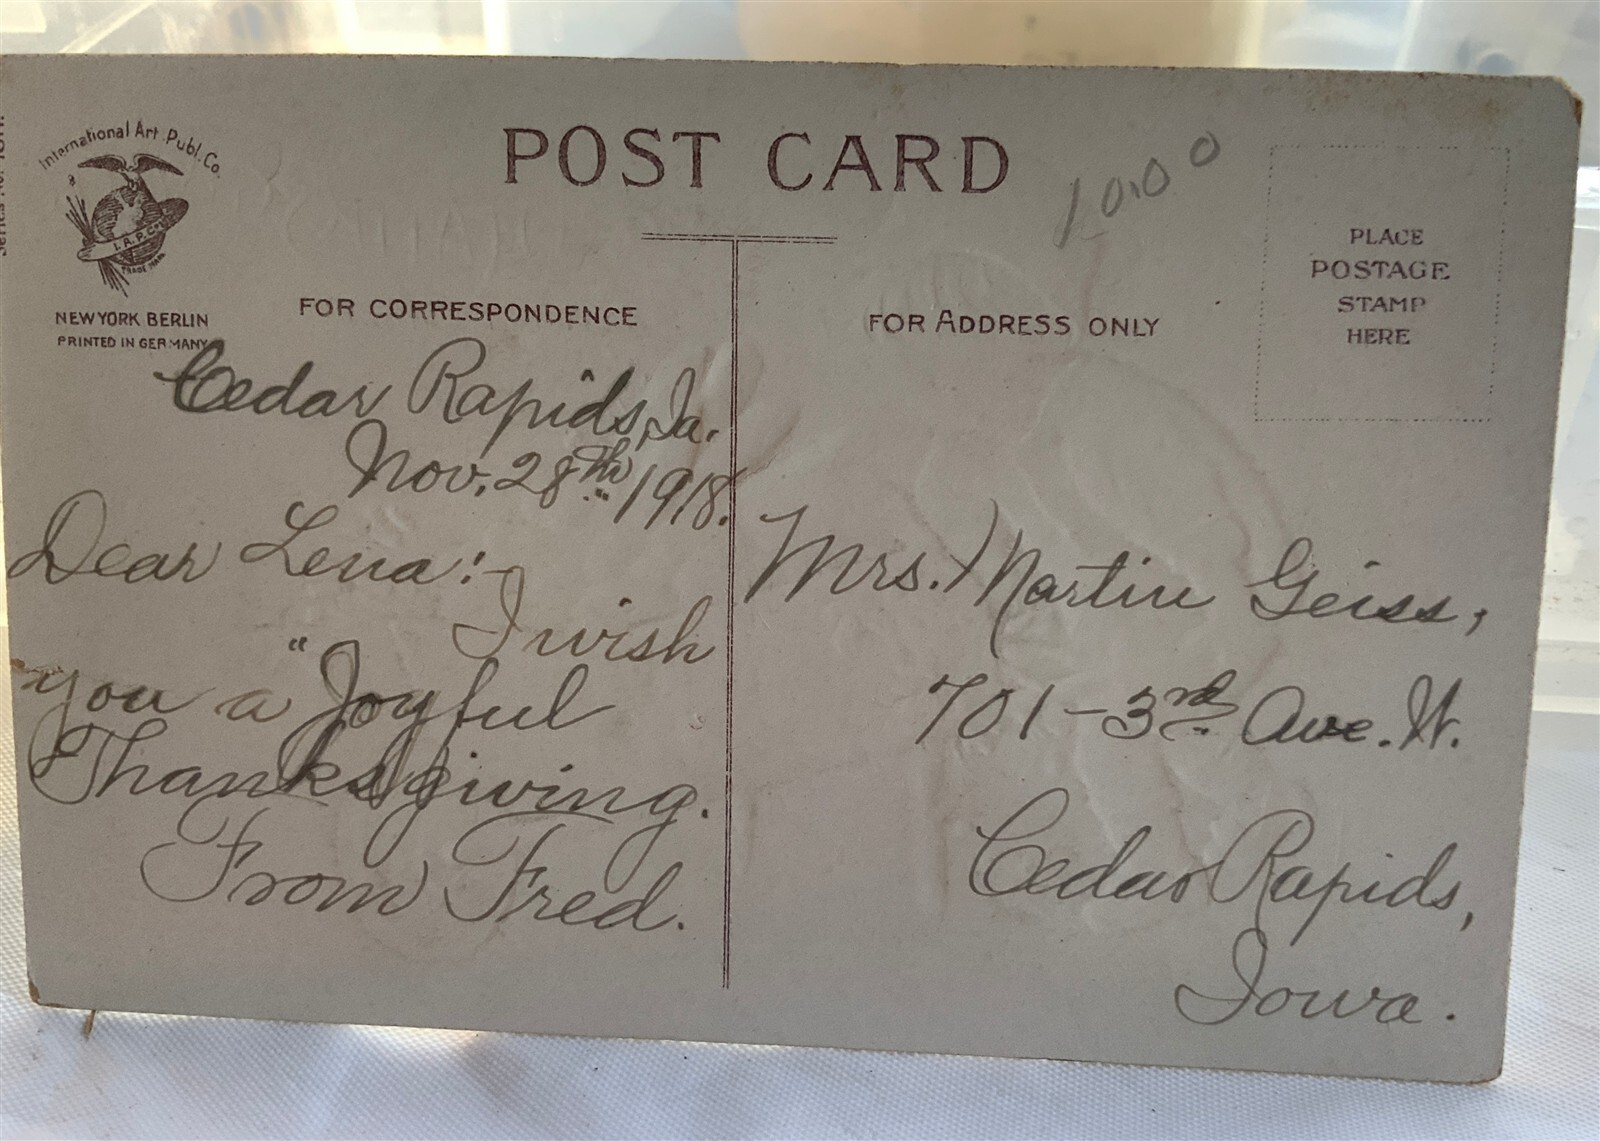 International Art Publ. Co.
I. A. P. Co.
TRADE MARK
NEW YORK BERLIN
PRINTED IN GERMANY
POST CARD
10.00
PLACE
POSTAGE
STAMP
HERE
FOR CORRESPONDENCE
Cedar Rapids, Ia.
Nov. 28th 1918.
Dear Lena:-
I wish
you a "Joyful
Thanksgiving.
From Fred.
FOR ADDRESS ONLY
Mrs. Martin Geiss,
701-3rd Ave. W.
Cedar Rapids,
Iowa.